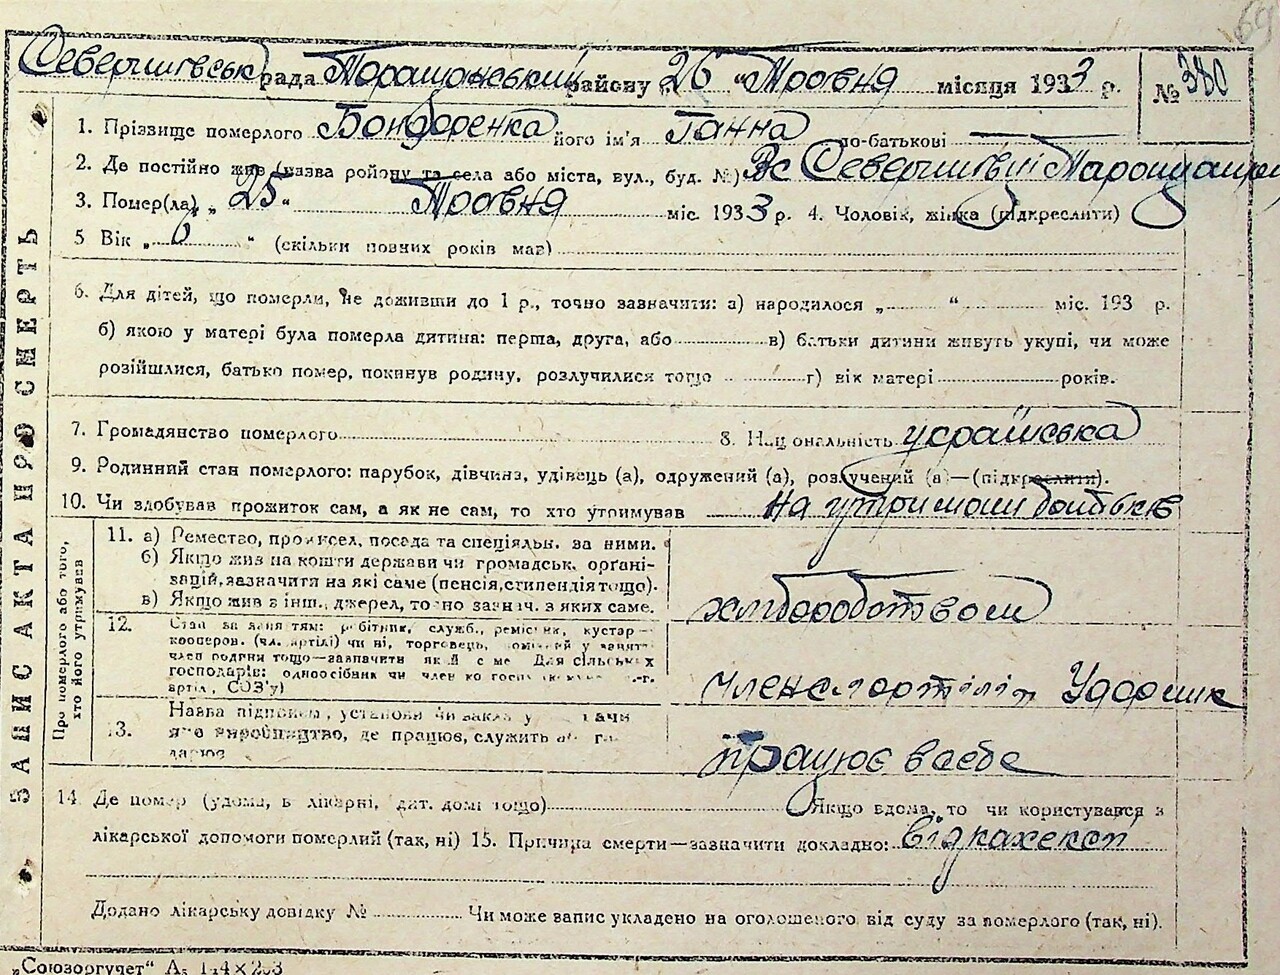 69
Северинівськ рада Таращанський району „26 “ Травня місяця 1933 р. № 380
1. Прізвище померлого Бондаренка його ім'я Ганна по-батькові
2. Де постійно жив (назва району та села або міста, вул., буд. №) Вс Северинівці Таращанськ
3. Помер(ла) „ 25 “ Травня міс. 1933 р. 4. Чоловік, жінка (підкреслити)
5 Вік „ 6 “ (скільки повних років мав)
6. Для дітей, що померли, не доживши до 1 р., точно зазначити: а) народилося „ “ міс. 193 р.
б) якою у матері була померла дитина: перша, друга, або в) батьки дитини живуть укупі, чи може
розійшлися, батько помер, покинув родину, розлучилися тощо г) вік матері років.
7. Громадянство померлого 8. Національність українська
9. Родинний стан померлого: парубок, дівчина, удівець (а), одружений (а), розлучений (а)—(підкреслити).
10. Чи здобував прожиток сам, а як не сам, то хто утримував на утримани батьків
ЗАПИС АКТА ПРО СМЕРТЬ
Про померлого або того, хто його утримував
11. а) Ремество, промисел, посада та спеціяльн. за ними.
б) Якщо жив на кошти держави чи громадськ. органі-
зацій, зазначити на які саме (пенсія, стипендія тощо).
в) Якщо жив з інш. джерел, точно зазнач. з яких саме.
хліборобством
12. Стан за заняттям: робітник, служб., реміснк, кустар—
кооперов. (чл. артілі) чи ні, торговець,
член родини тощо—зазначити
господарів: одноосібник чи член
артіл, СОЗ'у)
член с/г артілі Ударник
13. Назва підприєм, установи чи
виробництво, де працює, служить
працює в себе
14. Де помер (удома, в лікарні, дит. домі тощо) Якщо вдома, то чи користувався з
лікарської допомоги померлий (так, ні) 15. Причина смерти—зазначити докладно: від кахексії
Додано лікарську довідку № Чи може запис укладено на оголошеного від суду за померлого (так, ні).
„Союзоргучет“